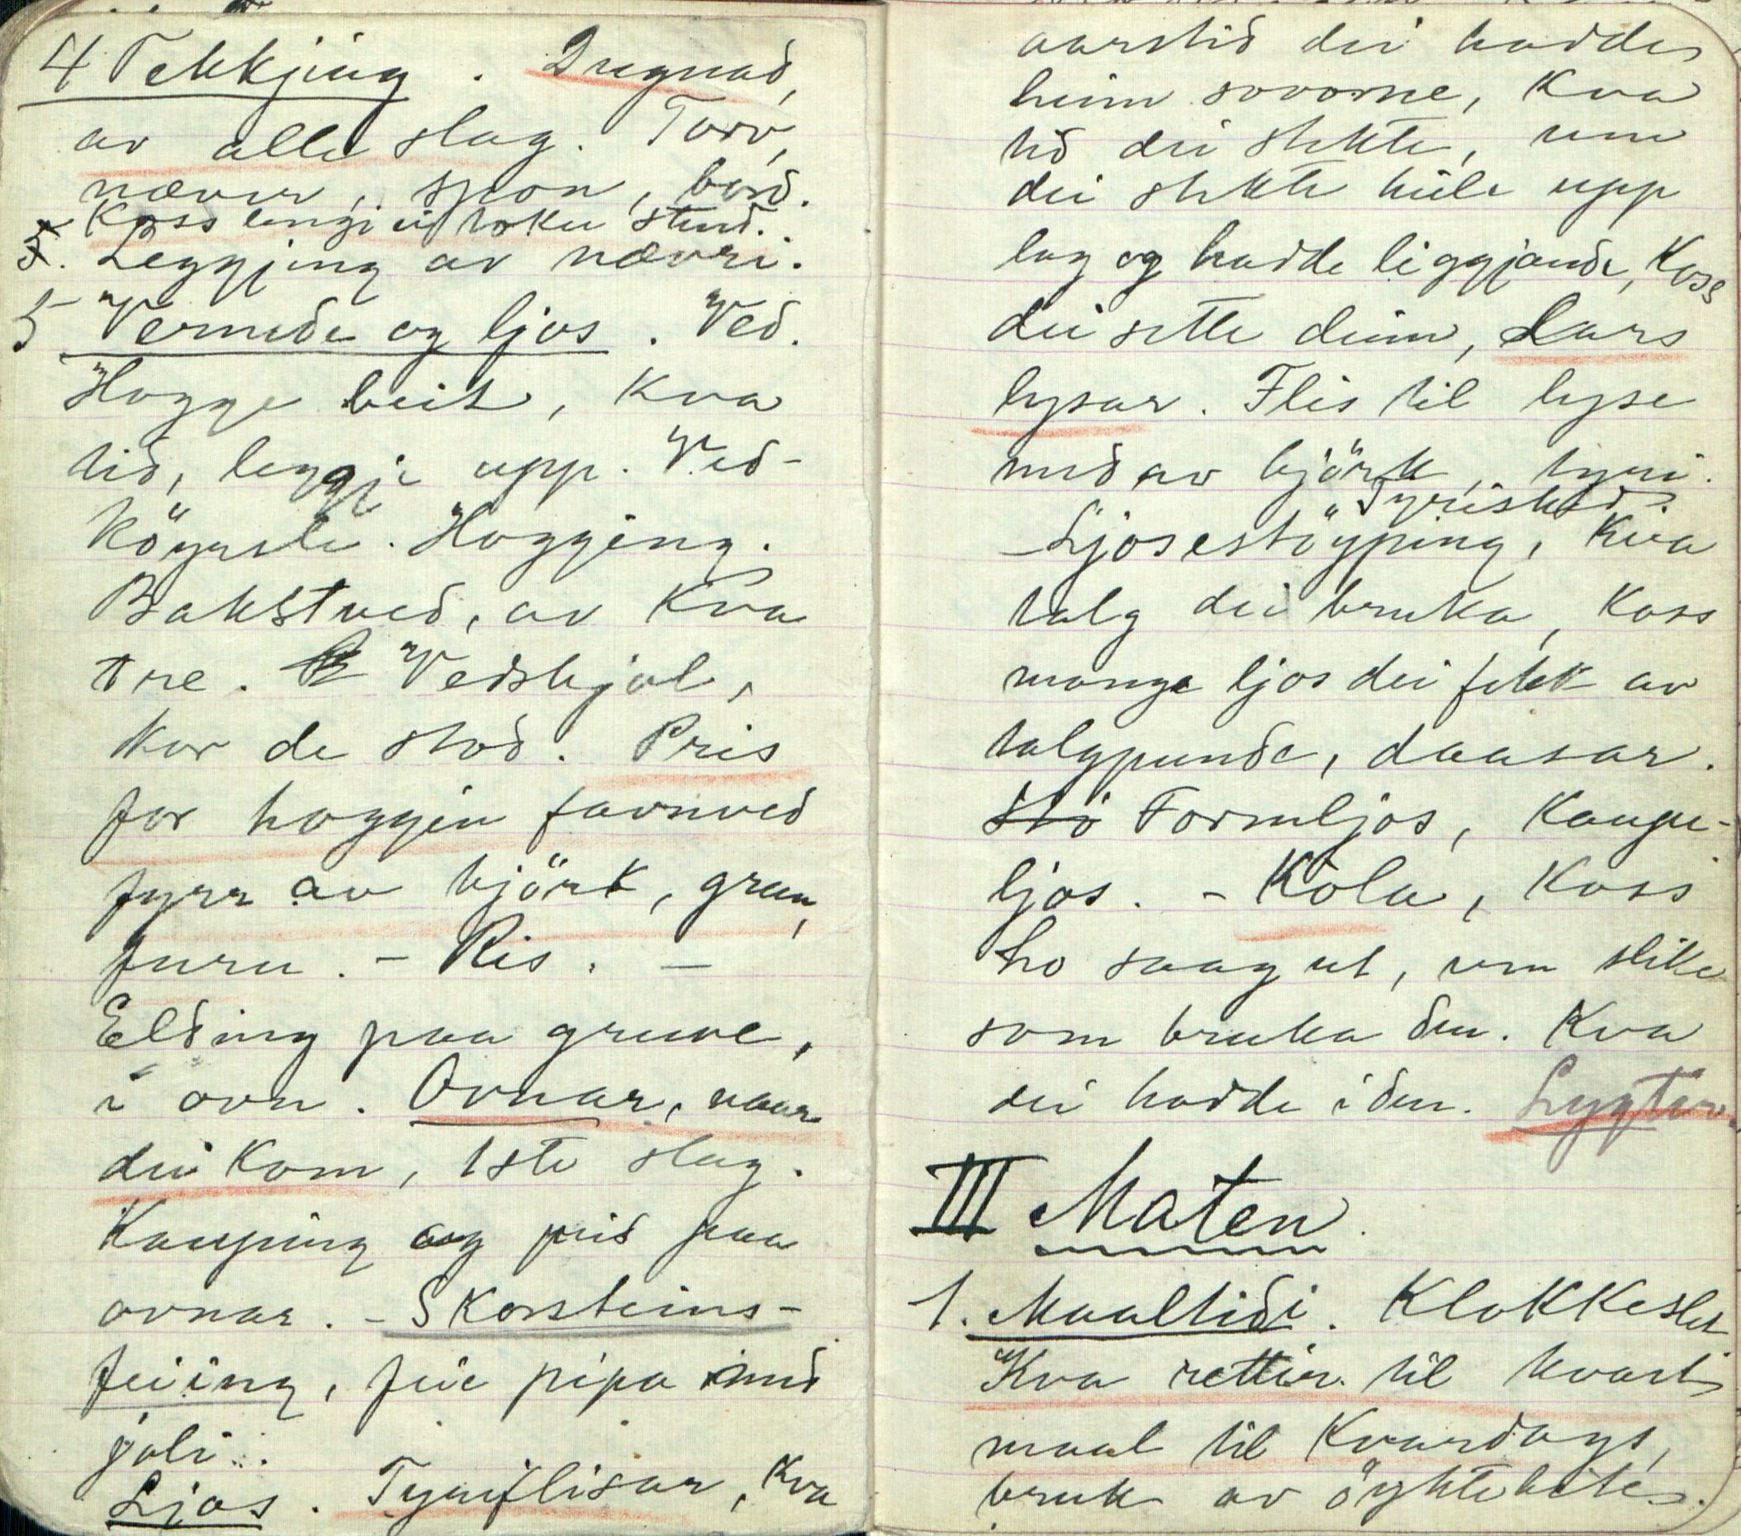 4 Tekkjing. Dugnad,
av alle slag. Torv,
næver, spon, bord.
Koss lengi ei toku stend.
Leggjing av nævri.
5 Vermede og ljos. Ved.
Hogge beit, Kva
tid, leggje upp. Ved-
köyrsle. Hogging.
Bakstved, av Kva
tre. Vedskjol,
kor de stod. Pris
for hoggen famnved
fyrr av björk, gran,
furu. - Ris. -
Elding paa gruve,
i ovn. Ovnar, naar
dei kom, 1ste slag.
Kauping og pris paa
ovnar. - Skorsteins-
feiing, feie pipa med
joli.
Ljos. Tyriflisar, Kva
aarstid dei hadde
heim sovorne, Kva
tid dei stikte, um
dei stikte heile upp
lag og hadde liggjande, Koss
dei sette deim, Lars
lysar. Flis til lyse
med av björk, tyri.
Tyristikd.
- Ljosestöyping, Kva
talg dei bruka, Koss
mange ljos dei fekk av
talgpunde, daasar.
Formljos, Kaupe-
ljos. - Kola, Koss
ho saag ut, um slike
som bruka den. Kva
dei hadde i den. Lygter
III Maten.
1. Maaltidi. Klokkeslet
Kva retter til kvart
maal til Kvardags,
bruk av öyktebite.